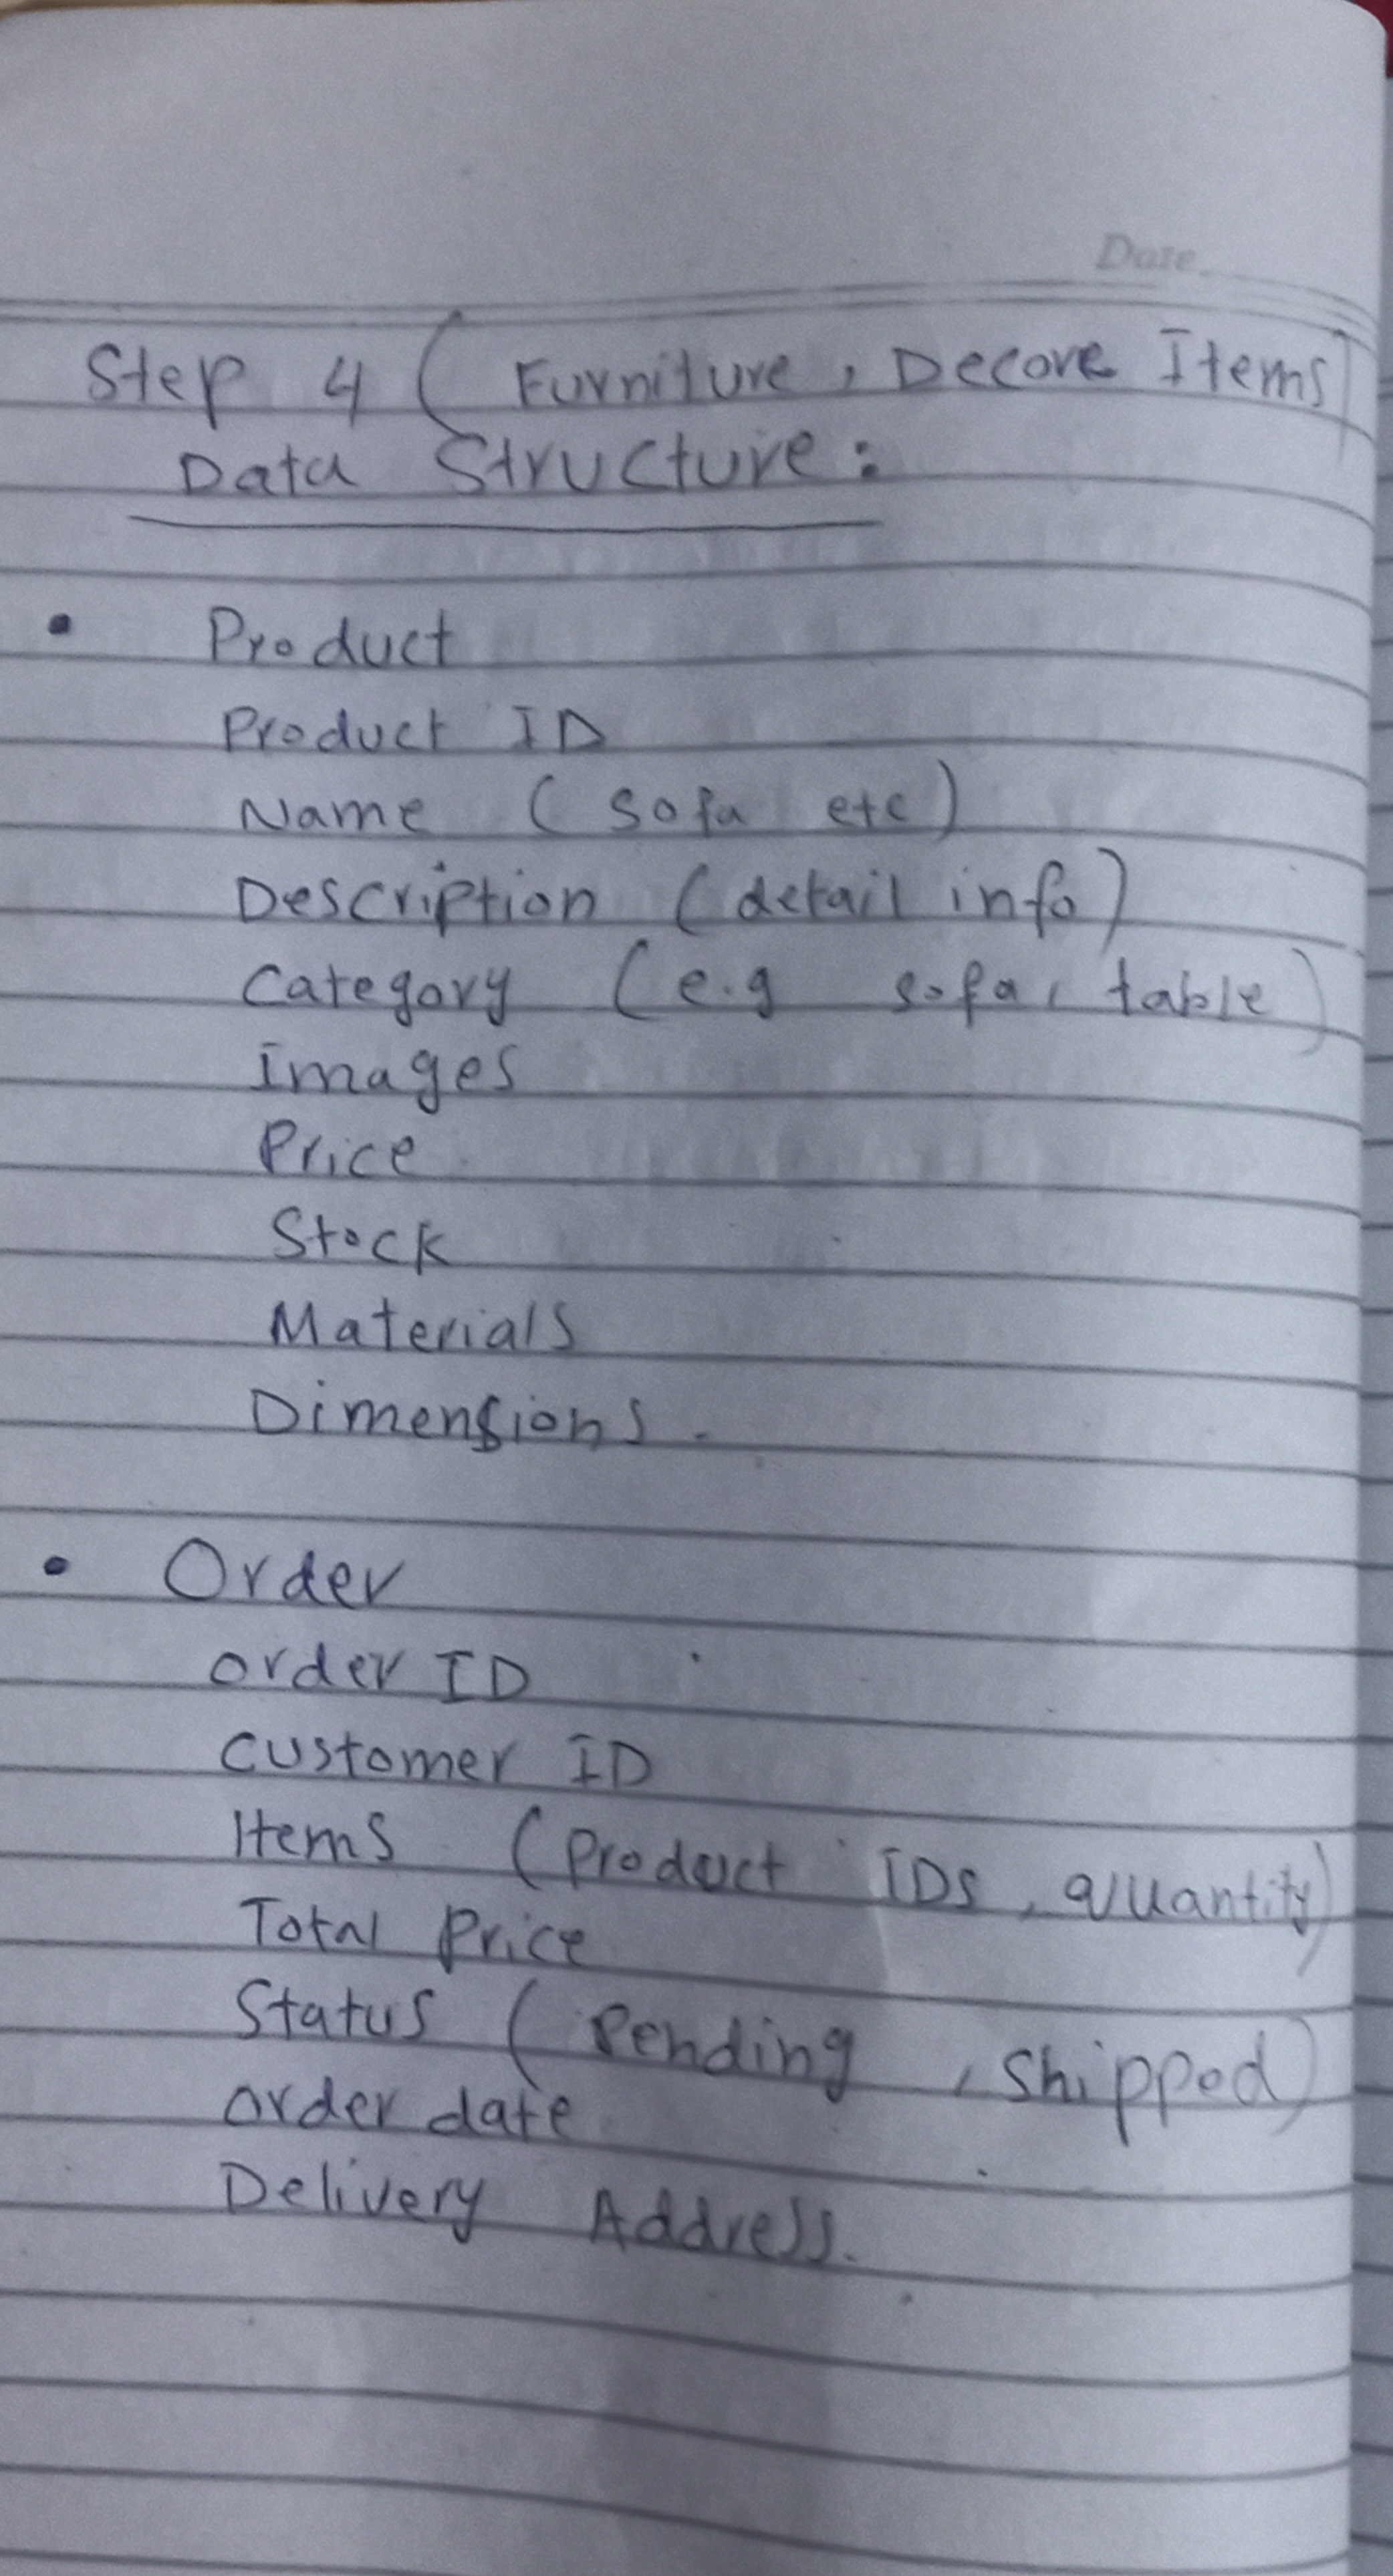 Date
Step 4 ( Furniture, Decore Items)
Data Structure:
• Product
Product ID
Name ( Sofa etc)
Description (detail info)
Category (e.g sofa, table)
Images
Price
Stock
Materials
Dimensions.
• Order
Order ID
Customer ID
Items (Product IDs, quantity)
Total Price
Status ( Pending, Shipped)
Order date
Delivery Address.